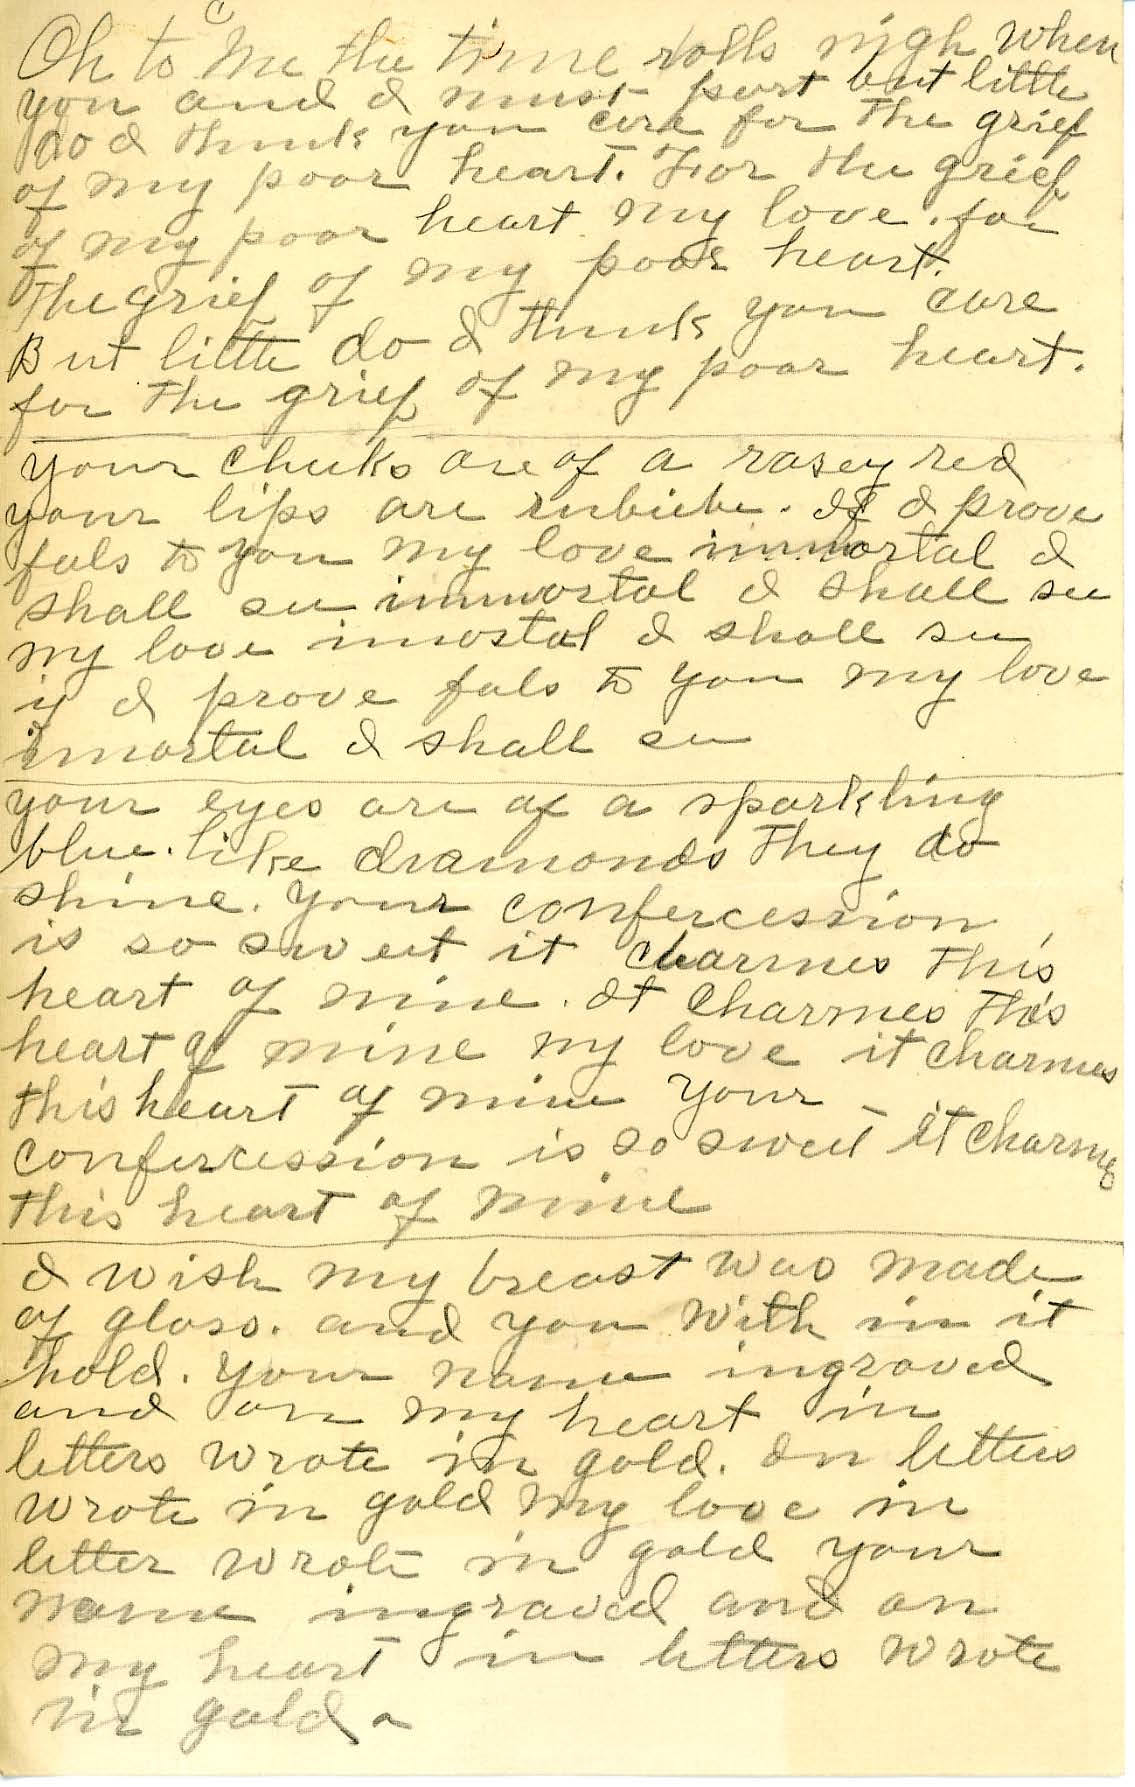 Oh to me the time rolls nigh when
you and I must part but little
do I think you care for the grief
of my poor heart. For the grief
of my poor heart my love. for
The grief of my poor heart.
But little do I think you care
for the grief of my poor heart.
your cheeks are of a rosey red
your lips are rubiebe. If I prove
fals to you my love immortal I
shall see immortal I shall see
my love imortal I shall see
if I prove fals to you my love
imortal I shall see
your eyes are of a sparkling
blue. like diamonds they do
shine. your confercession
is so sweet it charmes this
heart of mine. It charmes this
heart of mine my love it charmes
this heart of mine your
confercession is so sweet - it charmes
this heart of mine
I wish my breast was made
of glass. and you with in it
hold. your name ingraved
and on my heart in
letters wrote in gold. In letters
wrote in gold my love in
letter wrote in gold your
name ingraved and on
my heart in letters wrote
in gold